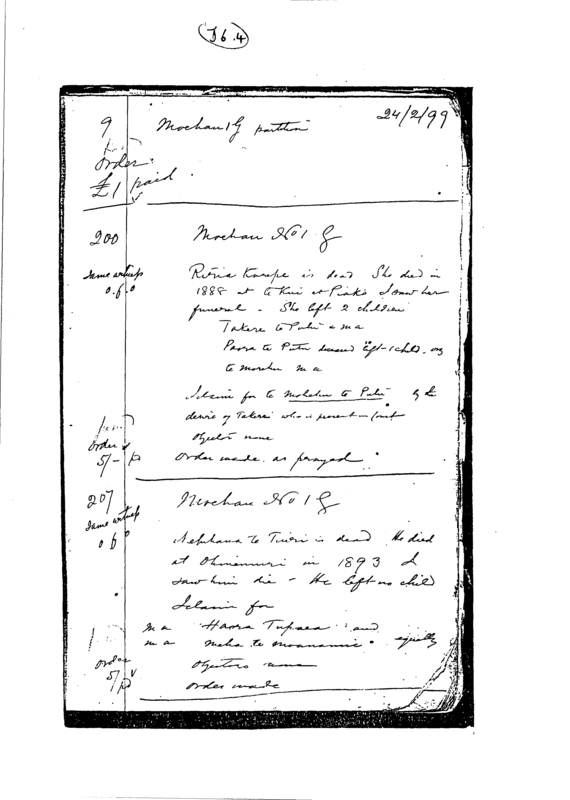 J6.4
9 Moehau 1G partition 24/2/99
Order
£1 paid
200 Moehau No 1 G
Same witness
0.6.0
is dead She died in
1888 at te Kuiti at Piako I saw her
funeral - She left 2 children
Takere te m a
Paora te deceased left 1 child
te m a
I claim for te te by the
desire of Takere who is present in Court
Objectors none
Order
5/- pd
Order made as prayed
207 Moehau No 1 G
Same witness
0 6 0
te is dead He died
at Ohinemuri in 1893 I
saw him die - He left no child
I claim for
m a Haora Tupaea and
m a Meha te Moananui equally
Order
5/ pd
Objectors none
Order made